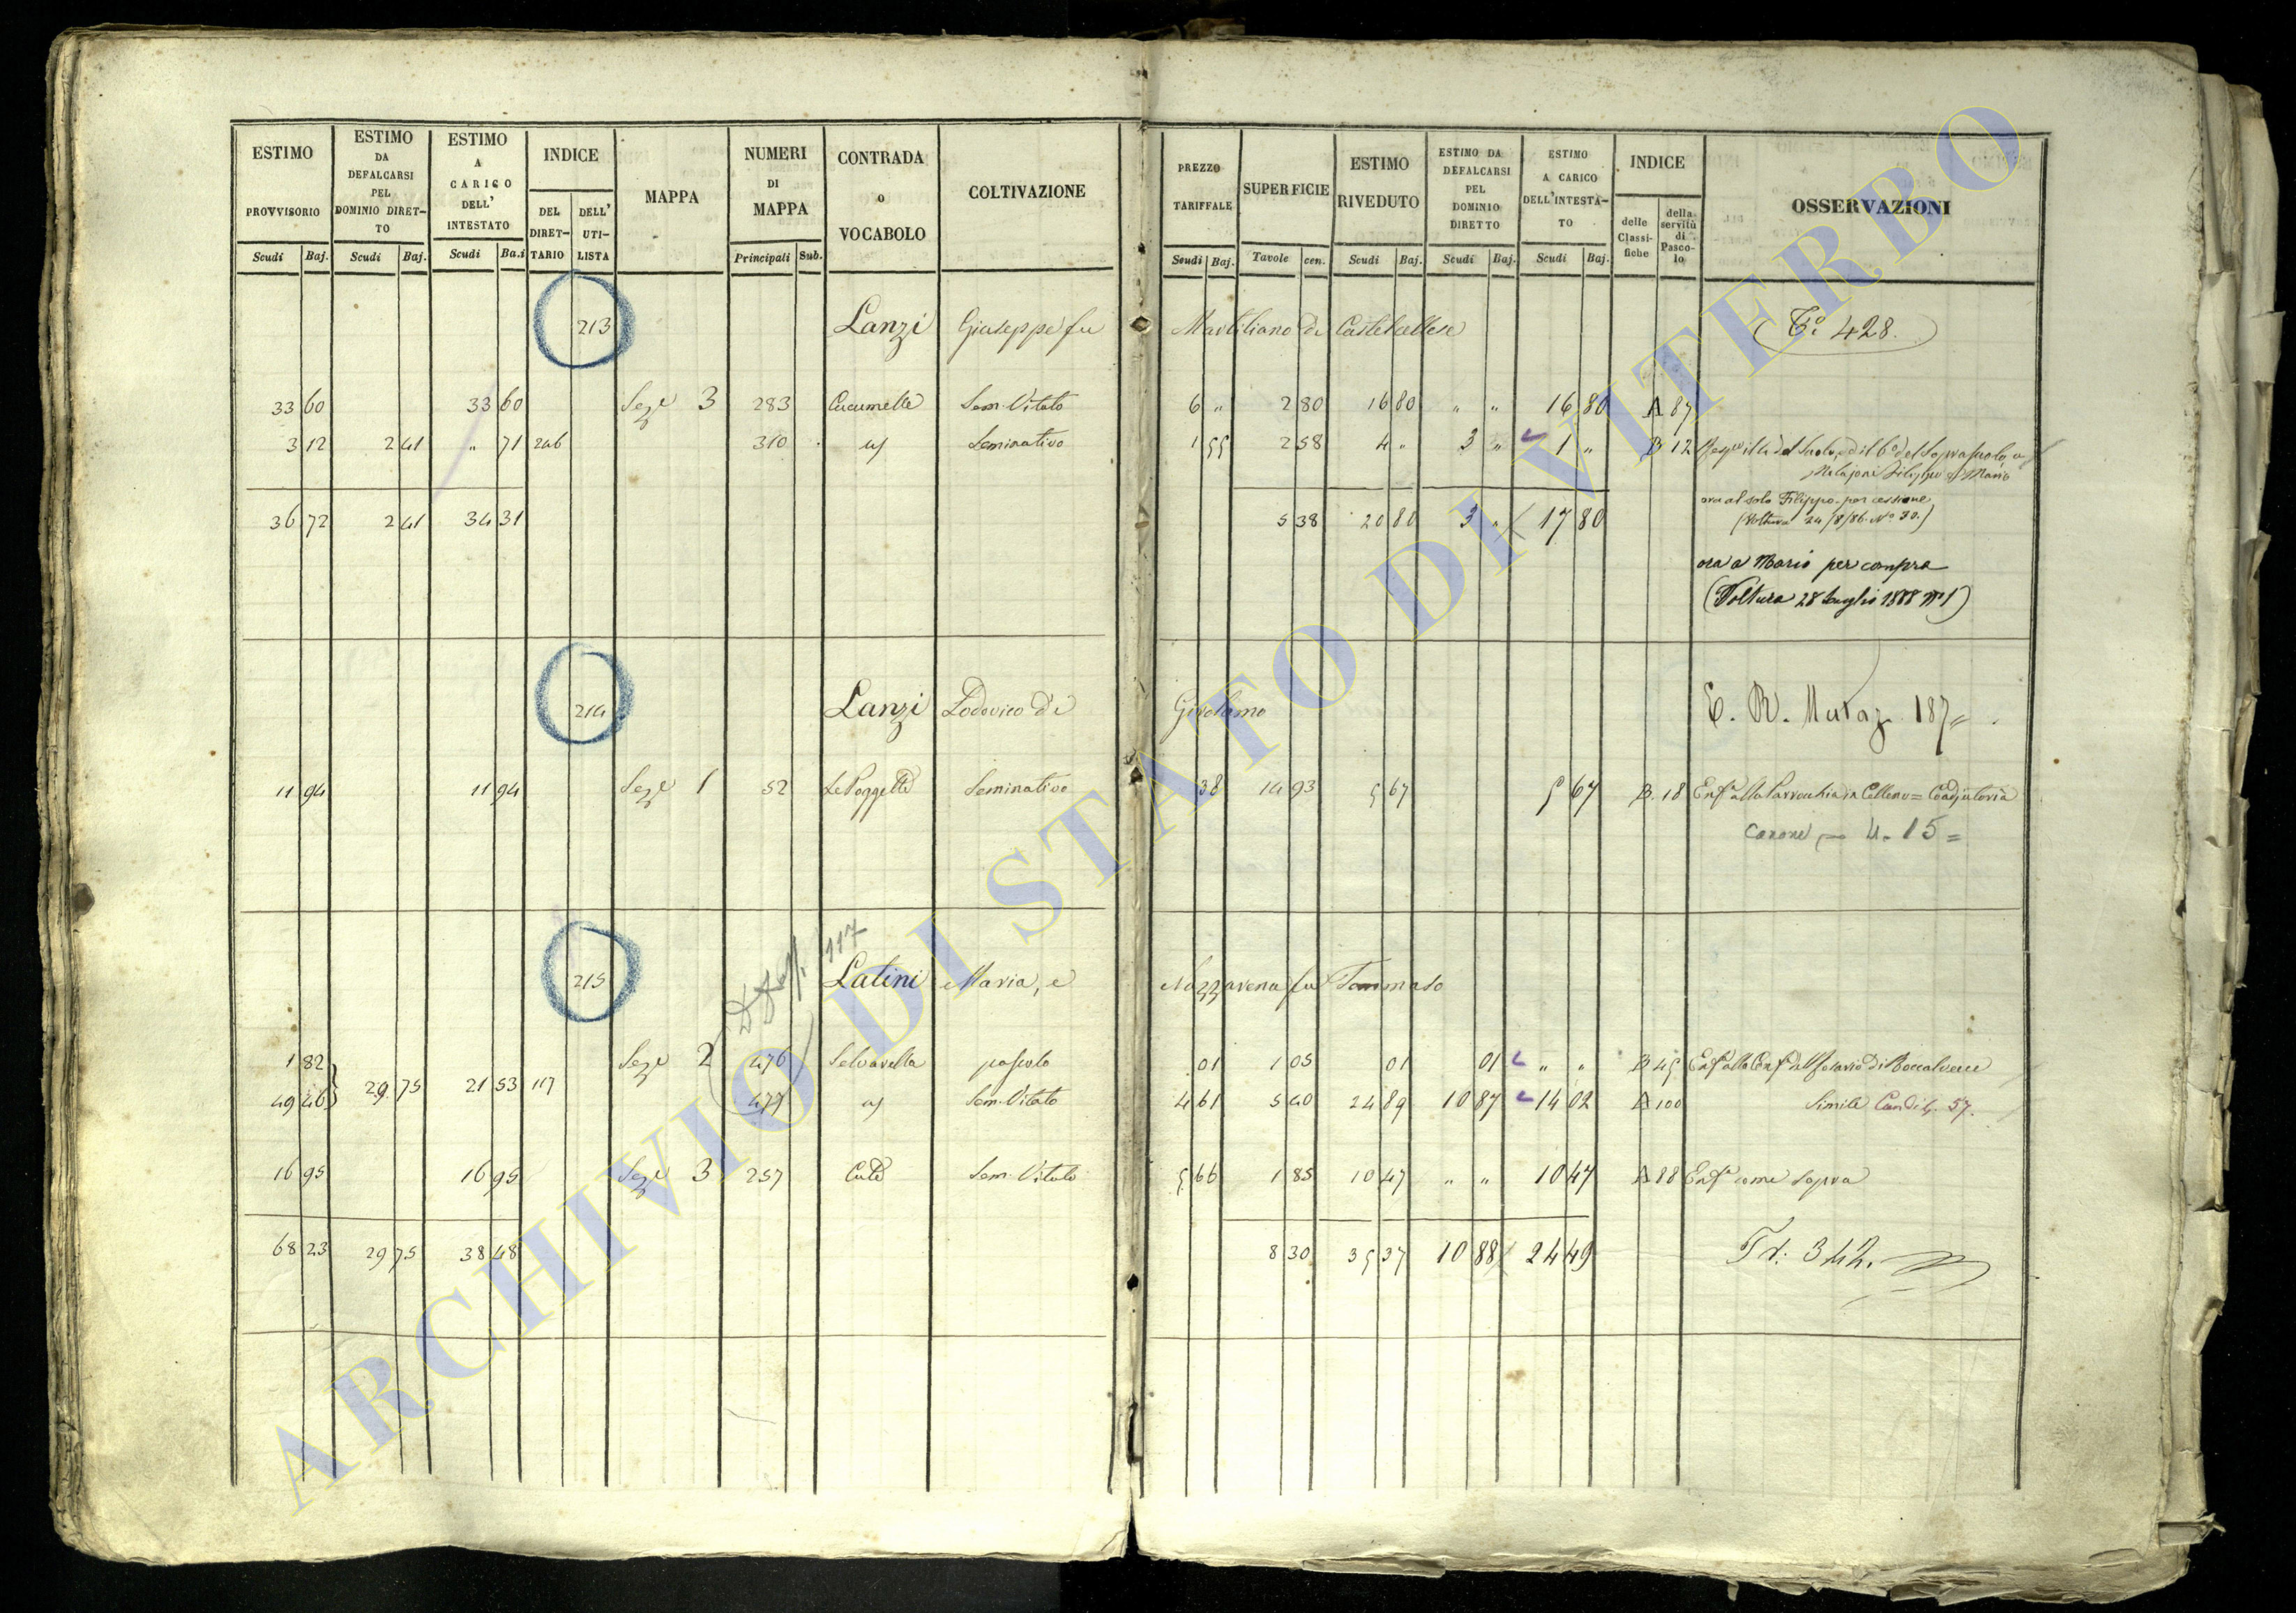 ESTIMO PROVVISORIO Scudi Baj.
ESTIMO DA DEFALCARSI PEL DOMINIO DIRET-TO Scudi Baj.
ESTIMO A CARICO DELL' INTESTATO Scudi Ba.i
INDICE DEL DIRET-TARIO DELL' UTI-LISTA
MAPPA
NUMERI DI MAPPA Principali Sub.
CONTRADA o VOCABOLO
COLTIVAZIONE
PREZZO TARIFFALE Scudi Baj.
SUPERFICIE Tavole cen.
ESTIMO RIVEDUTO Scudi Baj.
ESTIMO DA DEFALCARSI PEL DOMINIO DIRETTO Scudi Baj.
ESTIMO A CARICO DELL'INTESTA-TO Scudi Baj.
INDICE delle Classi-fiche della servitù di Pasco-lo
OSSERVAZIONI
213 Lanzi Giuseppe fu di Castelcellese
428.
33 60 33 60 Seze 3 283 Cucumelle Sem. Vitato 6 " 2 80 16 80 " " 16 80 A 87
3 12 2 41 " 71 246 310 Seminativo 1 55 2 58 4 " 3 " 1 " B 12
Filippo e Mario
ora al solo Filippo per cessione
36 72 2 41 34 31 5 38 20 80 3 " 17 80
(Voltura 24/8/86. Nº 30.)
ora a Mario per compra
(Voltura 28 Luglio 1888 Nº 1)
214 Lanzi Lodovico di Girolamo
187
11 94 11 94 Seze 1 52 Le Poggette Seminativo 38 14 93 5 67 5 67 B. 18 Enfª alla Parrocchia in Celleno = Coadjutoria
Canone 4. 15 =
117
215 Latini Maria, e Nazzarena fu Tommaso
1 82 Seze 2 476 Selvarella pascolo 01 1 05 01 01 " " B 45
29 75 21 53 117
49 46 477 Sem. Vitato 4 61 5 40 24 89 10 87 14 02 A 100 Simile 57.
16 95 16 95 Seze 3 257 Sem. Vitato 5 66 1 85 10 47 " " 10 47 A 88 Enfª come sopra
68 23 29 75 38 48 8 30 35 37 10 88 24 49
342.
ARCHIVIO DI STATO DI VITERBO